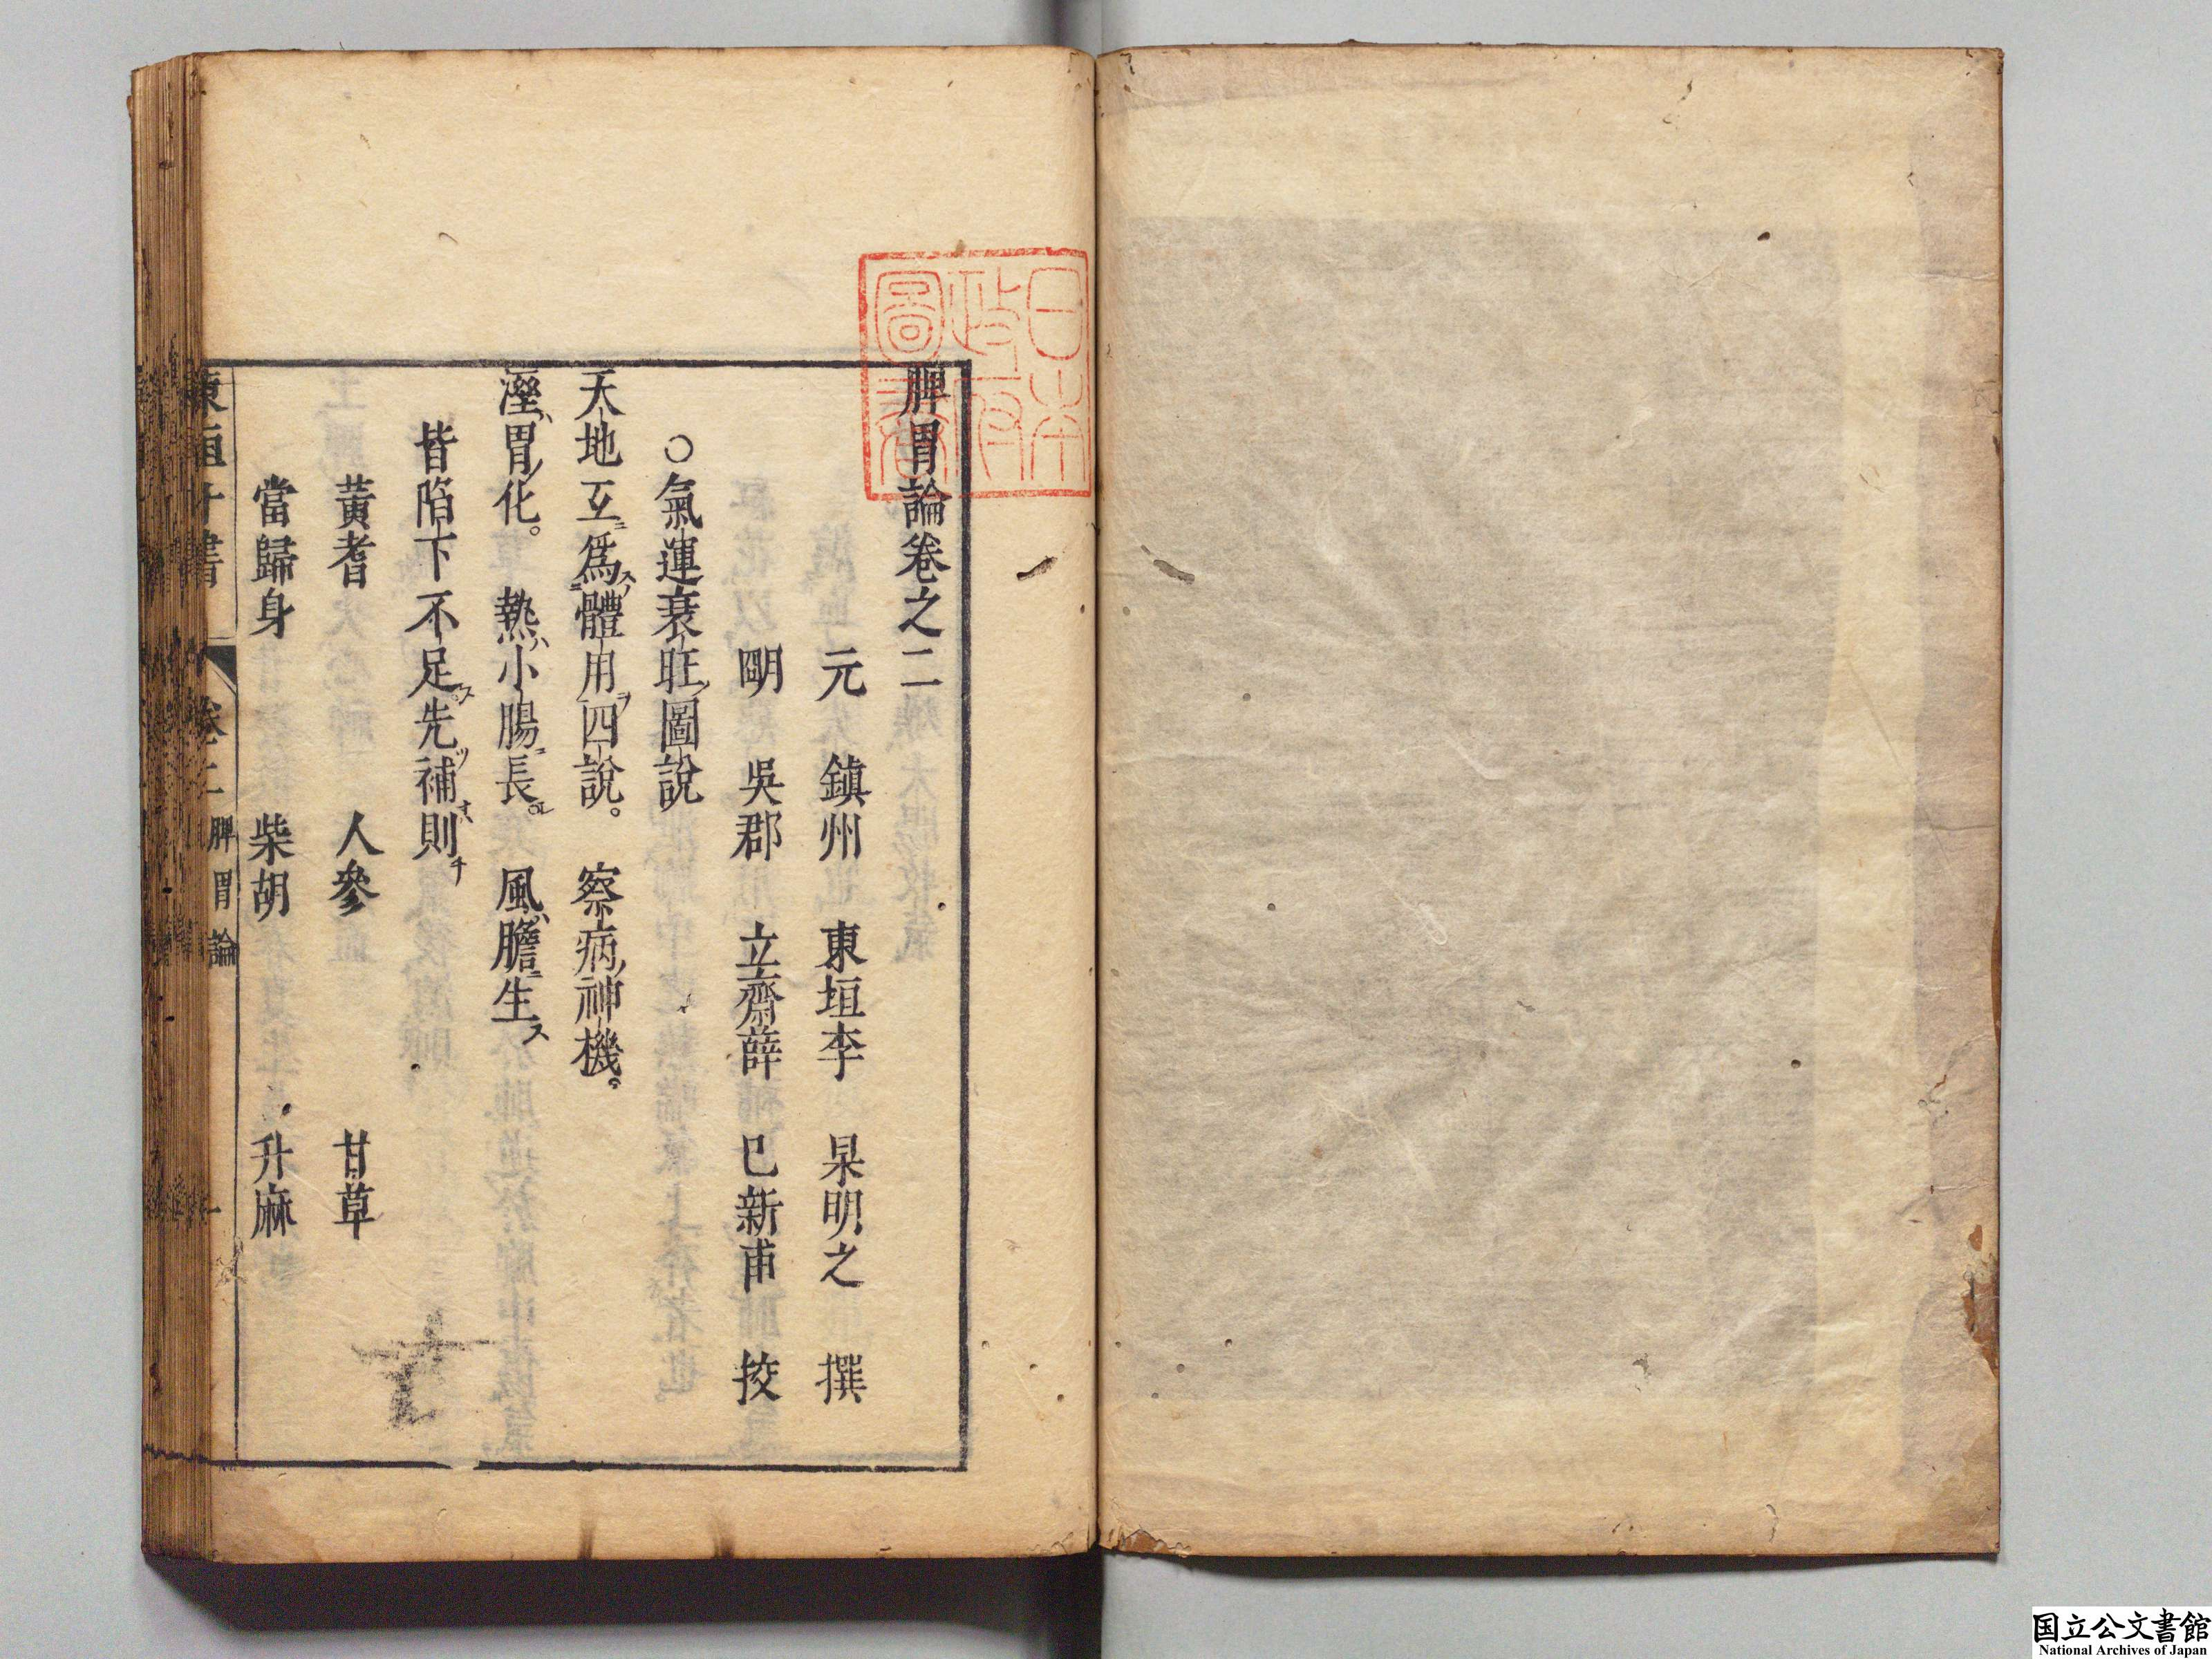 日本
政府
圖書
脾胃論卷之二
元 鎮州 東垣李 杲明之 撰
明 吳郡 立齋薛 己新甫 挍
○氣運衰旺圖說
天地互爲體用四說。 察病神機。
溼胃化。 熱小腸長。 風膽生
皆陷下不足先補則
黃耆 人參 甘草
當歸身 柴胡 升麻
東垣十書 卷二 脾胃論 一
国立公文書館
National Archives of Japan